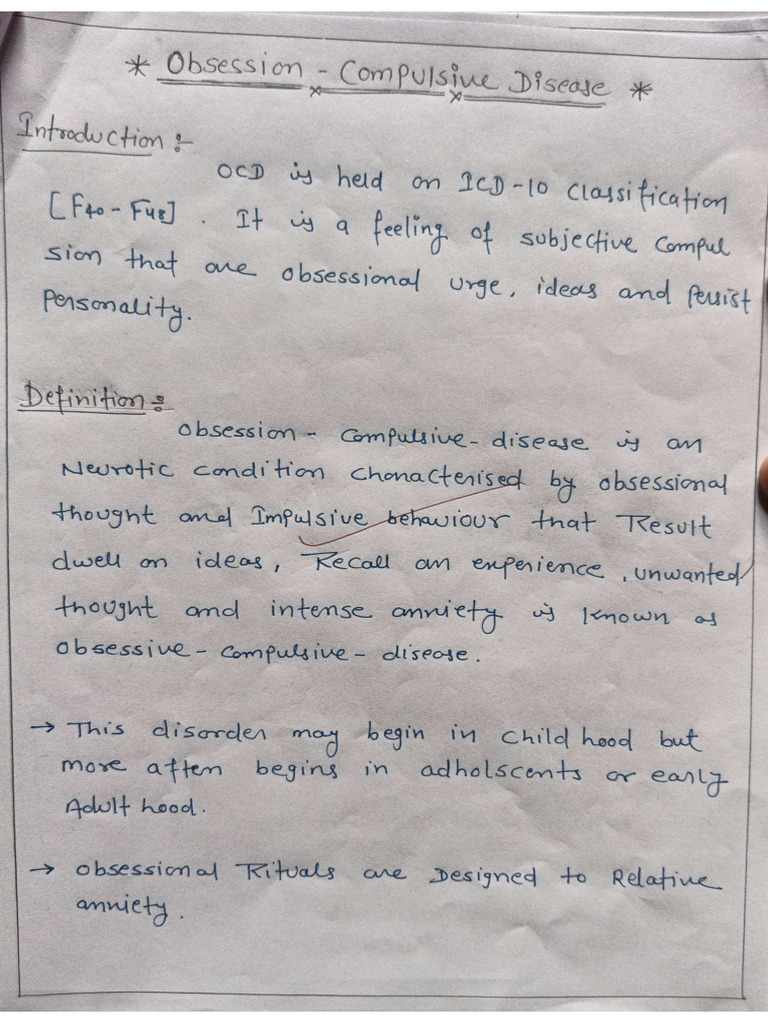 * Obsession - Compulsive Disease *
Introduction :-
OCD is held on ICD-10 Classification
[F40 - F48]. It is a feeling of subjective Compul
sion that are obsessional urge, ideas and Persist
Personality.
Definition :-
Obsession - Compulsive - disease is an
Neurotic condition characterised by obsessional
thought and Impulsive behaviour that Result
dwell on ideas, Recall an experience, unwanted
thought and intense anxiety is known as
Obsessive - Compulsive - disease.
→ This disorder may begin in child hood but
more aften begins in adholscents or early
Adult hood.
→ Obsessional Rituals are Designed to Relative
anxiety.